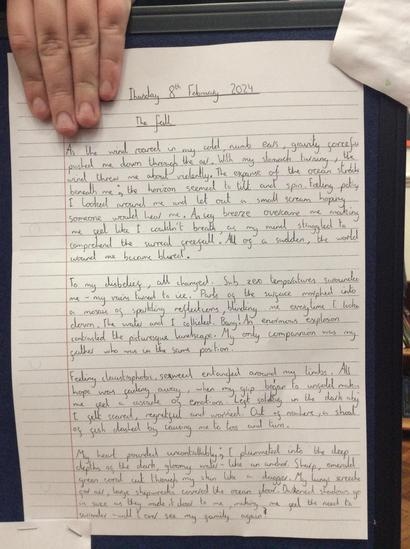 Thursday 8th February 2024
The Fall
As the wind roared in my cold, numb ears, gravity forcefu
pushed me down through the air. With my stomach turning, the
wind threw me about violently. The expanse of the ocean stretch
beneath me; the horizon seemed to tilt and spin. Feeling
I looked around me and let out a small scream hoping
someone would hear me. An icy breeze overcame me making
me feel like I couldn't breath as my mind struggled to
comprehend the surreal freefall. All of a sudden, the world
around me became blured.
To my disbelief, all changed. Sub zero temperatures surrounde
me - my veins turned to ice. Parts of the surface morphed into
a mosaic of sparkling reflections, blinding me everytime I looke
down. The water and I collided. Bang! An enormous explosion
contrasted the picturesque landscape. My only companion was my
father who was in the same position.
Feeling claustrophobic, seaweed entangled around my limbs. All
hope was fading away, when my grip began to unfold makin
me feel a cascade of emotions. Left in the dark
I felt scared, regretful and worried. Out of nowhere, a shoal
of fish dashed by causing me to toss and turn.
My heart pounded uncontrollably; I plummeted into the deep
depths of the dark, gloomy water - like an anchor. Sharp, emerald
green coral cut through my skin like a dagger. My lungs screeche
for air, large shipwrecks covered the ocean floor. Darkened shadows
in size as they made it down to me, making me feel the need to
surrender - will I ever see my family again?